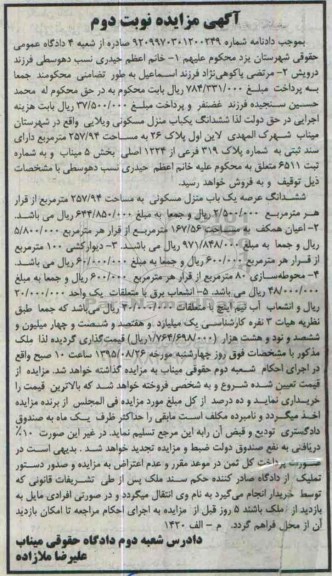 آگهی مزایده نوبت دوم
بموجب دادنامه شماره ۹۲۰۹۹۷۰۳۰۸۱۲۰۰۲۴۹ صادره از شعبه ۴ دادگاه عمومی
حقوقی شهرستان یزد محکوم علیهم ۱- خانم اعظم حیدری نسب دهوسطی فرزند
درویش ۲- مرتضی پاکوهی‌نژاد فرزند اسماعیل به طور تضامنی محکومند جمعا
به پرداخت مبلغ ۷۸۴/۳۳۱/۰۰۰ ریال بابت محکوم به در حق محکوم له محمد
حسین سنجیده فرزند غضنفر و پرداخت مبلغ ۳۷/۵۰۰/۰۰۰ ریال بابت هزینه
اجرایی در حق دولت لذا ششدانگ یکباب منزل مسکونی ویلایی واقع در شهرستان
میناب شهرک المهدی لاین اول پلاک ۲۶ به مساحت ۲۵۷/۹۴ مترمربع دارای
سند ثبتی به شماره پلاک ۳۱۹ فرعی از ۱۲۲۴ اصلی بخش ۵ میناب و به شماره
ثبت ۶۵۱۱ متعلق به محکوم علیه خانم اعظم حیدری نسب دهوسطی با مشخصات
ذیل توقیف و به فروش خواهد رسید.
ششدانگ عرصه یک باب منزل مسکونی به مساحت ۲۵۷/۹۴ مترمربع از قرار
هر مترمربع ۲/۵۰۰/۰۰۰ ریال و جمعا به مبلغ ۶۴۴/۸۵۰/۰۰۰ ریال می باشد.
۲- اعیان همکف به مساحت ۱۶۷/۵۶ مترمربع از قرار هر مترمربع ۵/۸۰۰/۰۰۰
ریال و جمعا به مبلغ ۹۷۱/۸۴۸/۰۰۰ ریال می باشند. ۳- دیوارکشی ۱۰۰ مترمربع
از قرار هر مترمربع ۶۰۰/۰۰۰ ریال و جمعا به مبلغ ۶۰/۰۰۰/۰۰۰ ریال می باشد.
۴- محوطه‌سازی ۸۰ مترمربع از قرار هر مترمربع ۶۰۰/۰۰۰ ریال و جمعا به مبلغ
۴۸/۰۰۰/۰۰۰ ریال می باشد. ۵- انشعاب برق با متعلقات یک واحد ۳۰/۰۰۰/۰۰۰
ریال و انشعاب آب نیم اینچ با متعلقات ریال می‌باشد که جمعا طبق
نظریه هیات ۳ نفره کارشناسی یک میلیارد و هفتصد و شصت و چهار میلیون و
ششصد و نود و هشت هزار (۱/۷۶۴/۶۹۸/۰۰۰ ریال) قیمت‌گذاری گردیده لذا ملک
مذکور با مشخصات فوق روز چهارشنبه مورخه ۱۳۹۵/۰۸/۲۶ ساعت ۱۰ صبح واقع
در اجرای احکام شعبه دوم حقوقی میناب به مزایده گذاشته خواهد شد. مزایده از
قیمت تعیین شده شروع و به شخصی فروخته خواهد شد که بالاترین قیمت را
خریداری نماید و ده درصد از کل مبلغ مورد مزایده فی المجلس از برنده مزایده
اخذ میگردد و نامبرده مکلف است مابقی را حداکثر ظرف یک ماه به صندوق
دادگستری تودیع و قبض آن را به این مرجع تسلیم نماید. در غیر این صورت ۱۰٪
دریافتی به نفع صندوق دولت ضبط و مزایده تجدید خواهد شد. بدیهی است در
صورت پرداخت کل ثمن در موعد مقرر و عدم اعتراض به مزایده و صدور دستور
تملیک از دادگاه صادر کننده حکم سند ملک پس از طی تشریفات قانونی که
توسط خریدار انجام می‌گیرد به نام وی انتقال میگردد و در صورتی افرادی مایل به
بازدید از ملک باشند ۵ روز قبل از مزایده به اجرای احکام مراجعه تا امکان بازدید
آن از محل فراهم گردد. م - الف ۱۴۲۰
دادرس شعبه دوم دادگاه حقوقی میناب
علیرضا ملازاده